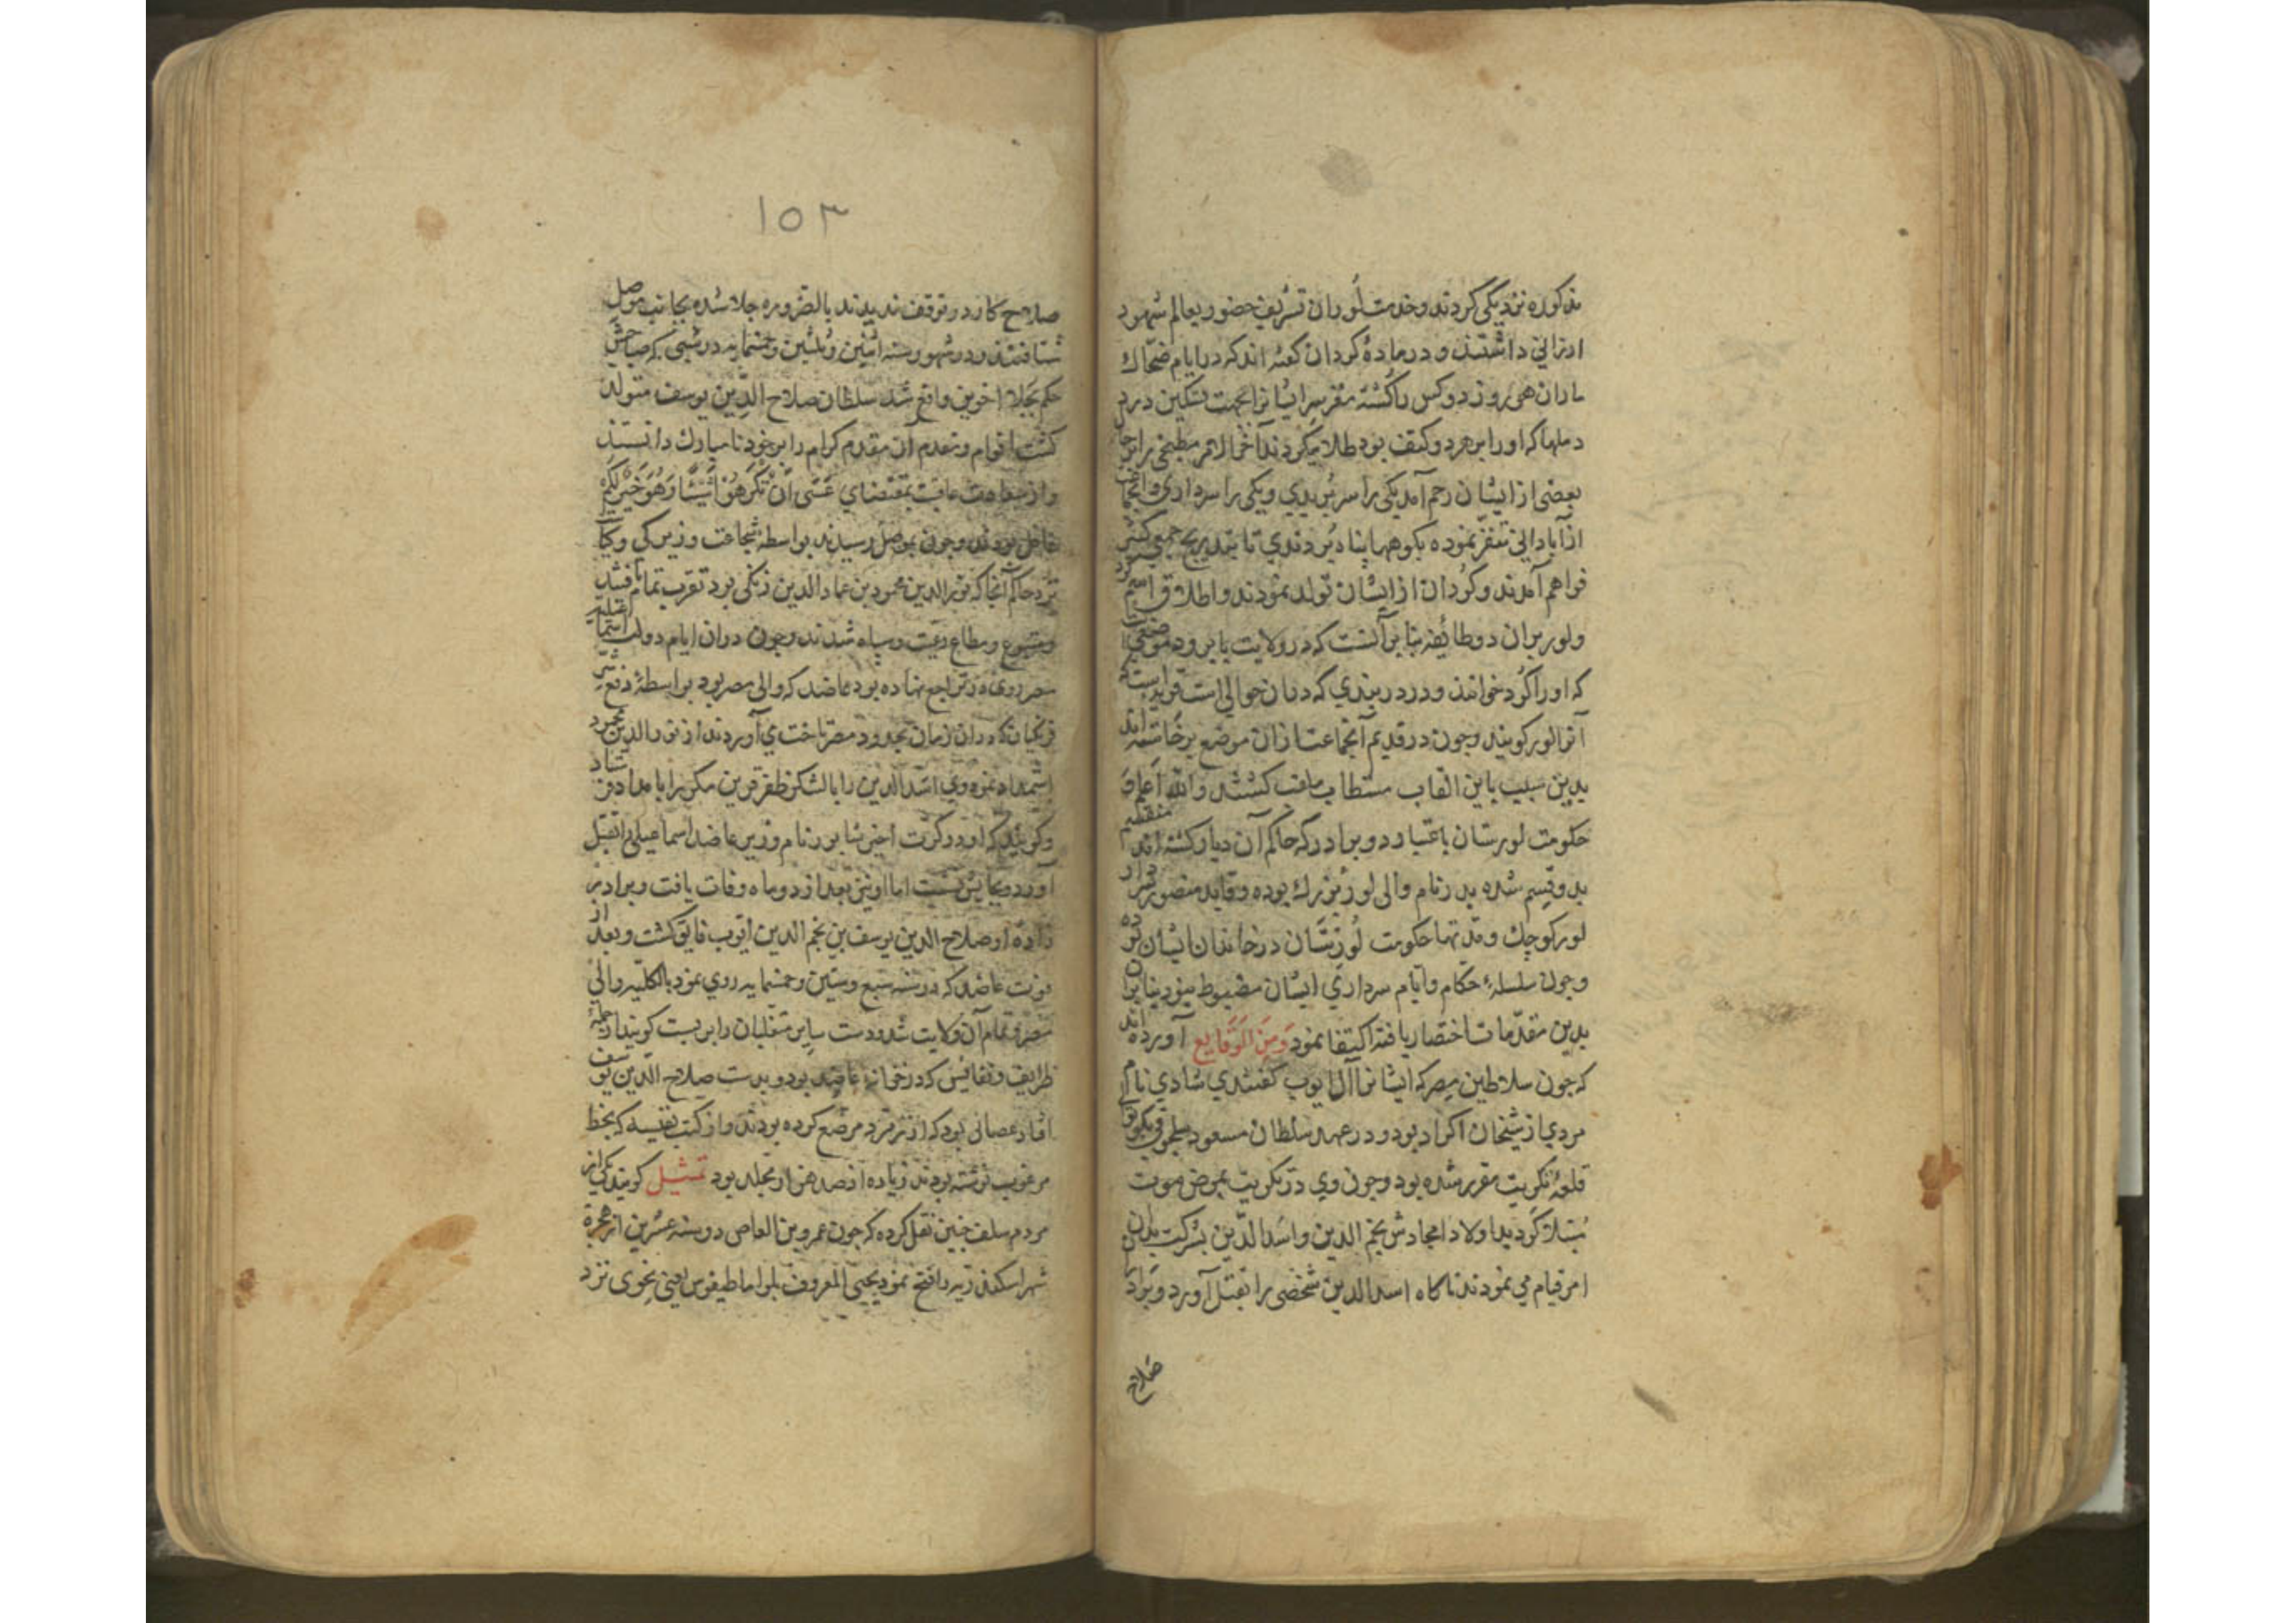 مذکوره نزدیکی کردند و خدمت لوران تشریف حضور بعالم شهود
ارزانی داشتند و در ماده کردان گفته اند که در ایام ضحاک
ماران هر روز دو کس را کشته مغز سر ایشانرا بجهت تسکین درد
دملها که او را بر هر دو کتف بود طلا میکردند آخر الامر مطبخی را بر حال
بعضی از ایشان رحم آمد یکی را سر بریدی و یکی را سر دادی و آنجماعت
از آبادانی تنفر نموده بکوهها پناه بردندی تا بتدریج جمعی کثیر
فراهم آمدند و کردان از ایشان تولد نمودند و اطلاق اسم کرد
و لور بران دو طایفه بنا بر آنست که در ولایت یابرود موضعیست
که او را کرد خوانند و در دربندی که دران حوالی است قریه ایست که
آنرا لور کویند و چون در قدیم آنجماعت ازان موضع برخاسته اند
بدین سبب باین القاب مستطاب ملقب کشتند والله اعلم و
حکومت لورستان باعتبار دو برادر که حاکم آن دیار کشته اند منقسم
بدو قسم شده بدر نام والی لور بزرک بوده و قاید منصور سردار
لور کوچک و مدتها حکومت لورستان در خاندان ایشان بوده
و چون سلسله حکام و ایام سرداری ایشان مضبوط نبود بنابران
بدین مقدمات اختصار یافته اکتفا نمود وَمِنَ الوَقَایِع آورده اند
که چون سلاطین مصر که ایشانرا آل ایوب کفتندی شادی نام
مردی از شیخان اکراد بود و در عهد سلطان مسعود سلجوقی بکوتوالی
قلعه تکریت مقرر شده بود و چون وی در تکریت بمرض موت
مبتلا کردید اولاد امجادش نجم الدین و اسد الدین بشرکت بدان
امر قیام می نمودند ناکاه اسد الدین شخصی را بقتل آورد و برادر
صلاح
۱۵۳
صلاح کار در توقف ندیدند بالضروره جلا شده بجانب موصل
شتافتند و در شهور سنه اثنین و ثلثین و خمسمایه در شبی که صباحش
حکم بجلا اخوین واقع شد سلطان صلاح الدین یوسف متولد
کشت اقوام و مقدم آن مقدم کرام را بر خود نامبارک دانستند
و از سعادت عاقبت بمقتضای عَسَی اَنْ تَکْرَهُوْا شَیْئًا وَهُوَ خَیْرٌ لَکُمْ
غافل بودند و چون بموصل رسیدند بواسطه شجاعت و زیرکی و کیاست
نزد حاکم آنجا که نور الدین محمود بن عماد الدین زنکی بود تقرب تمام یافتند
و متبوع و مطاع رعیت و سپاه شدند و چون دران ایام دولت اسماعیلیه
مصر روی در تراجع نهاده بود عاضد که والی مصر بود بواسطه دفع شر
فرنکیان که دران زمان بحدود مصر تاخت می آوردند از نور الدین محمود
استمداد نموده وی اسد الدین را با لشکر ظفر قرین مکرر بامداد فرستاد
و کویند که او در کرت اخیر شابور نام وزیر عاضد اسماعیلی را بقتل
آورد و بجایش نشست اما او نیز بعد از دو ماه وفات یافت و برادر
زاده او صلاح الدین یوسف بن نجم الدین ایوب فایق کشت و بعد از
فوت عاضد که در سنه سبع و ستین و خمسمایه روی نمود بالکلیه والی
مصر و تمام آن ولایت شد و دست سایر متغلبان را بر بست کویند از جمله
ظرایف و نفایس که در خزانه عاضد بود و بدست صلاح الدین یوسف
افتاد عصائی بود که از زمرد مرصع کرده بودند و از کتب نفیسه که بخط
مرغوب نوشته بودند زیاده از صد هزار مجلد بود تمثیل کویند یکی از
مردم سلف چنین نقل کرده که چون عمرو بن العاص در سنه عشرین از هجرة
شهر اسکندریه را فتح نمود یحیی المعروف بلواماطیقوس یعنی نحوی نزد